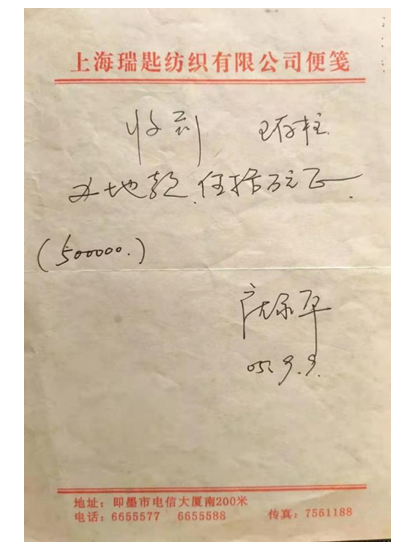 上海瑞匙纺织有限公司便笺
收到 王存柱
办地款.伍拾万元正
(500000.)
05.9.9.
地址：即墨市电信大厦南200米
电话：6655577 6655588 传真：7561188